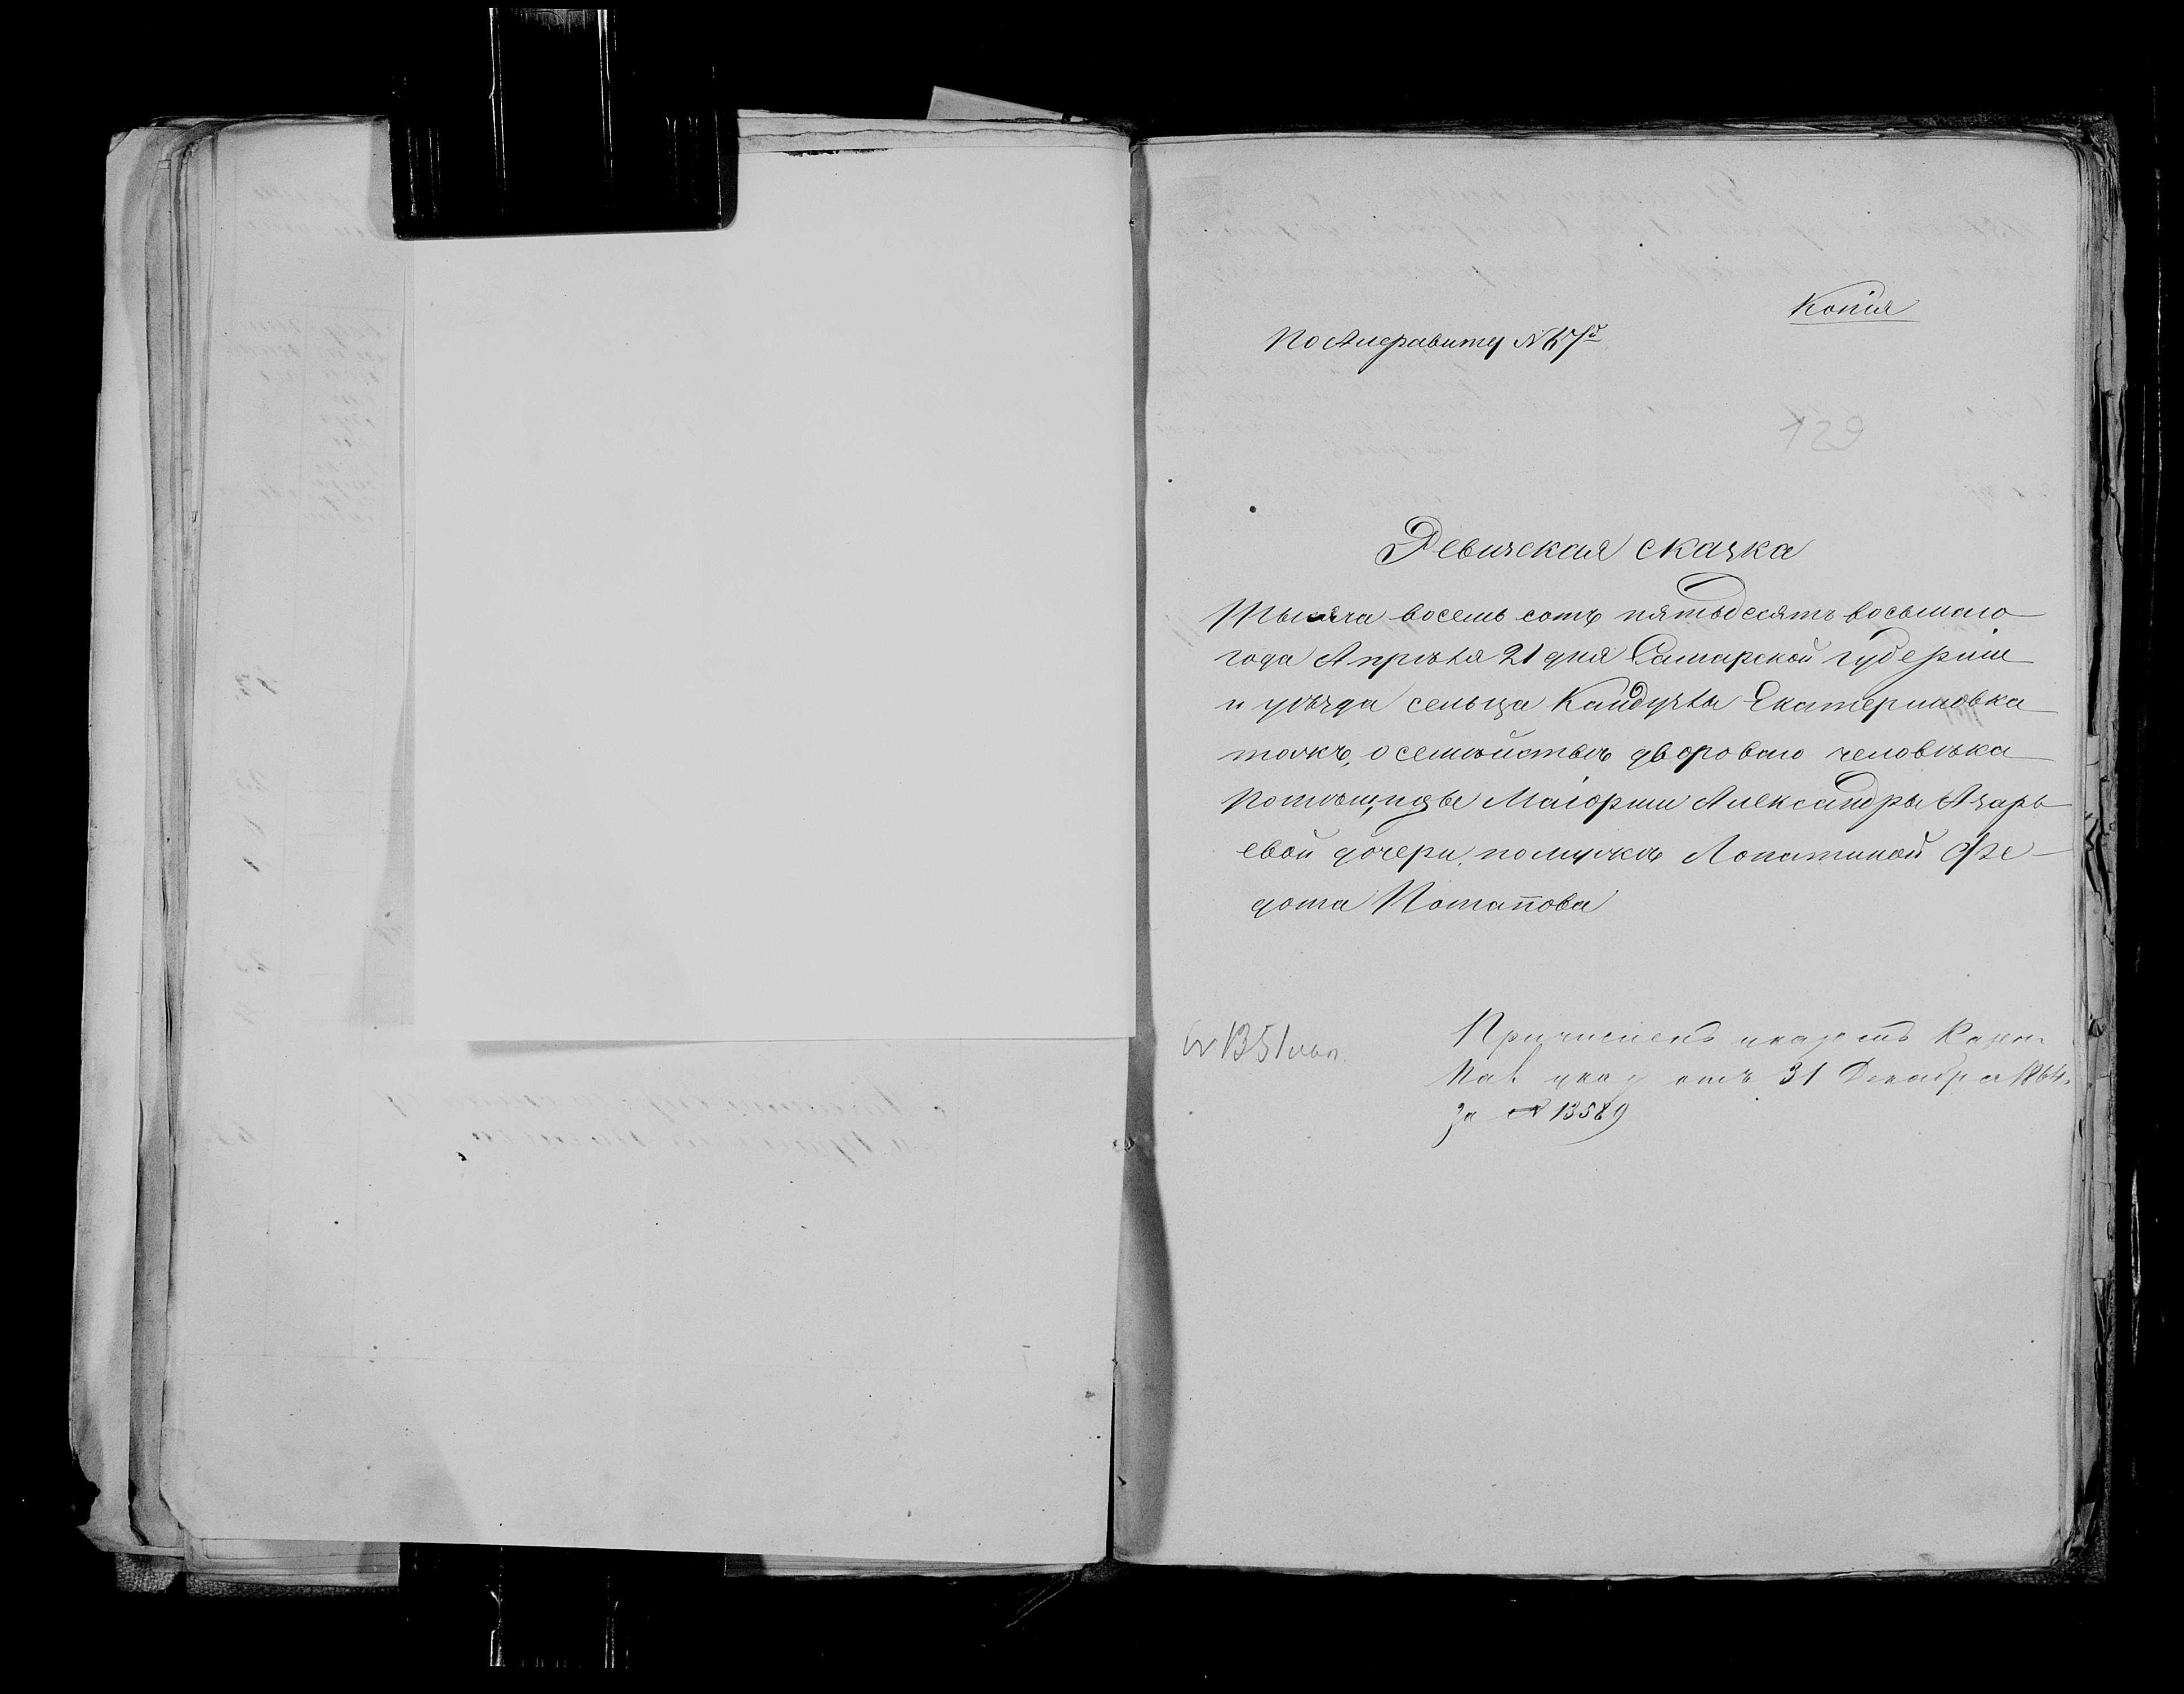 Копія
По Алфавиту № 67й
129
Ревизская сказка
Тысяча восемь сотъ пятьдесятъ восьмаго
года Апрѣля 21 дня Самарской губерніи
и уѣзда сельца Кандузлы Екатериновка
тожъ, о семѣйствѣ двороваго человѣка
помѣщицы Маіорши Александры Азарь
евой дочери по мужѣ Лопатиной Фе-
дота Потапова
№ 1351
Причислены Казен.
Пал. указ отъ 31 Декабря 1864.
за № 13589